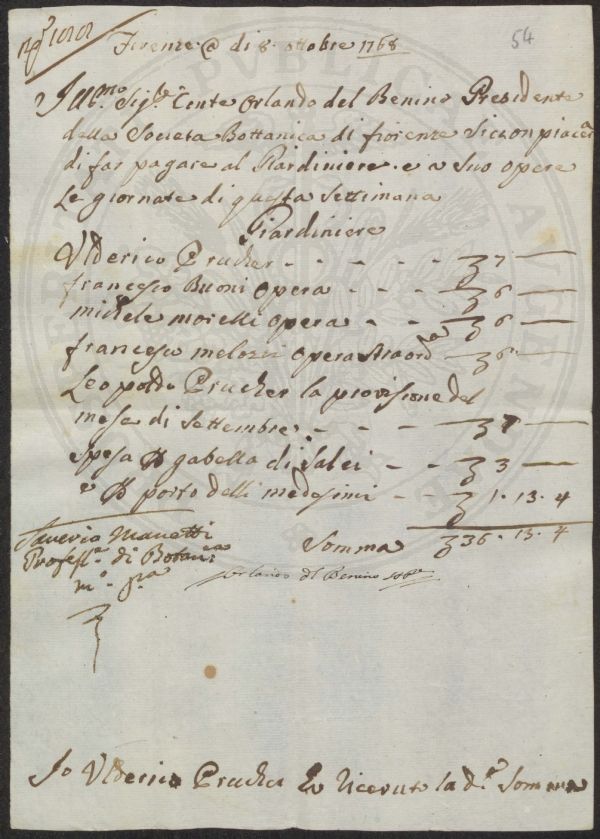 54
Firenze @ di 8. ottobre 1768
Ill:mo Sig:r Conte Orlando del Benino Presidente
della Societa Bottanica di fiorenze Si con piacera
di far pagare al Giardiniere. e a Suo opere
Le giornate di questa Settimana
Giardiniere
Ulderico Prucher - - - - - 7 —
francesco Buoni opera - - - 6 —
michele morelli opera - - 6 —
francesco melozzi opera Straord:a — 6 —
Leopoldo Prucher la provisione del
mese di Settembre - - - 7 —
spesa P gabella di Salci - - 3 —
e P porto delli medesimi - - 1. 13. 4
Somma 36. 13. 4
Saverio Manetti
Profess:re di Botanica
m:o p:a
Orlando del Benino
Io Ulderico Prucher Ho Ricevuto la d:a Somma